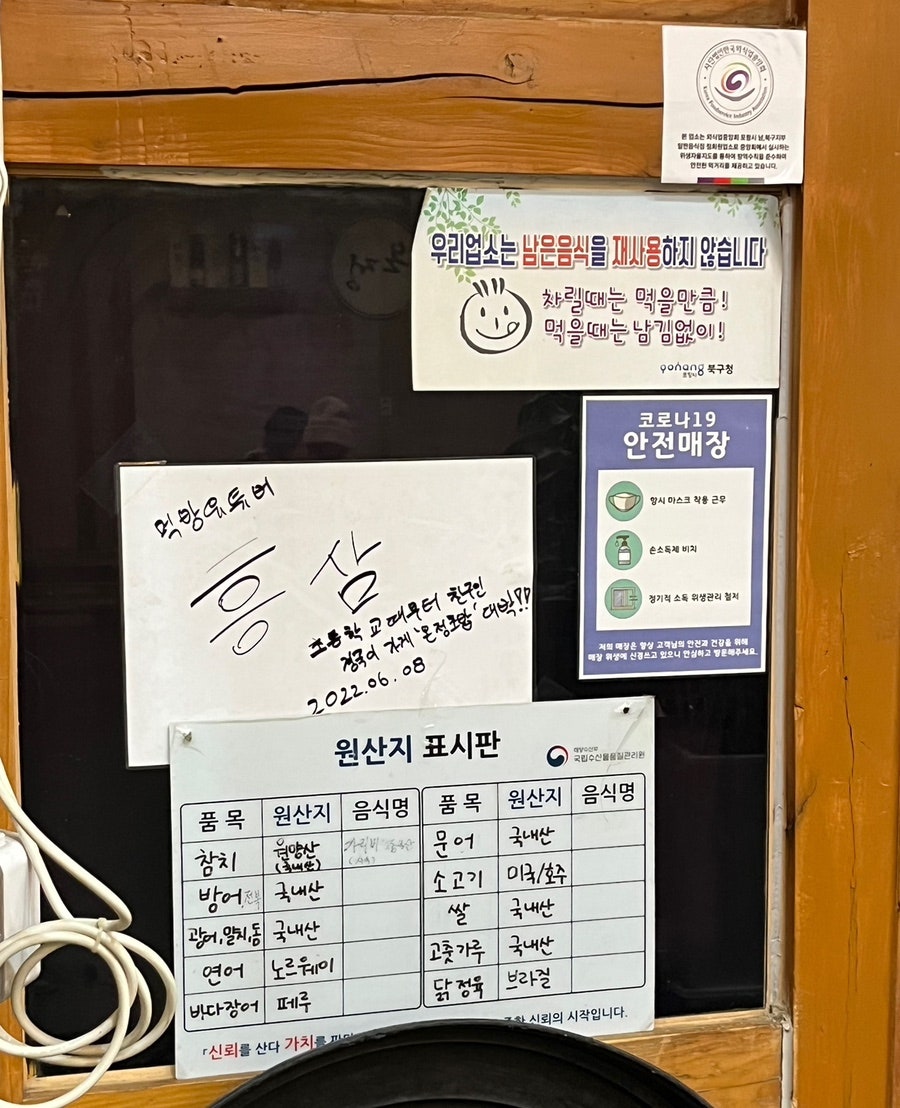 사단법인한국외식업중앙회
Korea Foodservice Industry Association
본 업소는 외식업중앙회 포항시 남,북구지부
일반음식점 정회원업소로 중앙회에서 실시하는
위생자율지도를 통하여 방역수칙을 준수하며
안전한 먹거리를 제공하고 있습니다.
우리업소는 남은음식을 재사용하지 않습니다
차릴때는 먹을만큼!
먹을때는 남김없이!
포항시 북구청
코로나19
안전매장
항시 마스크 착용 근무
손소독제 비치
정기적 소독 위생관리 철저
저희 매장은 항상 고객님의 안전과 건강을 위해
매장 위생에 신경쓰고 있으니 안심하고 방문해주세요.
먹방유튜버
흥삼
초등학교때부터 친구인
경국이 가게 '온정초밥' 대박!!
2022.06.08
원산지 표시판
해양수산부
국립수산물품질관리원
품목 원산지 음식명 품목 원산지 음식명
참치 원양산 (국내산) 문어 국내산
방어,전복 국내산 소고기 미국/호주
광어,멸치,돔 국내산 쌀 국내산
연어 노르웨이 고춧가루 국내산
바다장어 페루 닭정육 브라질
「신뢰를 산다 가치를 신뢰의 시작입니다.